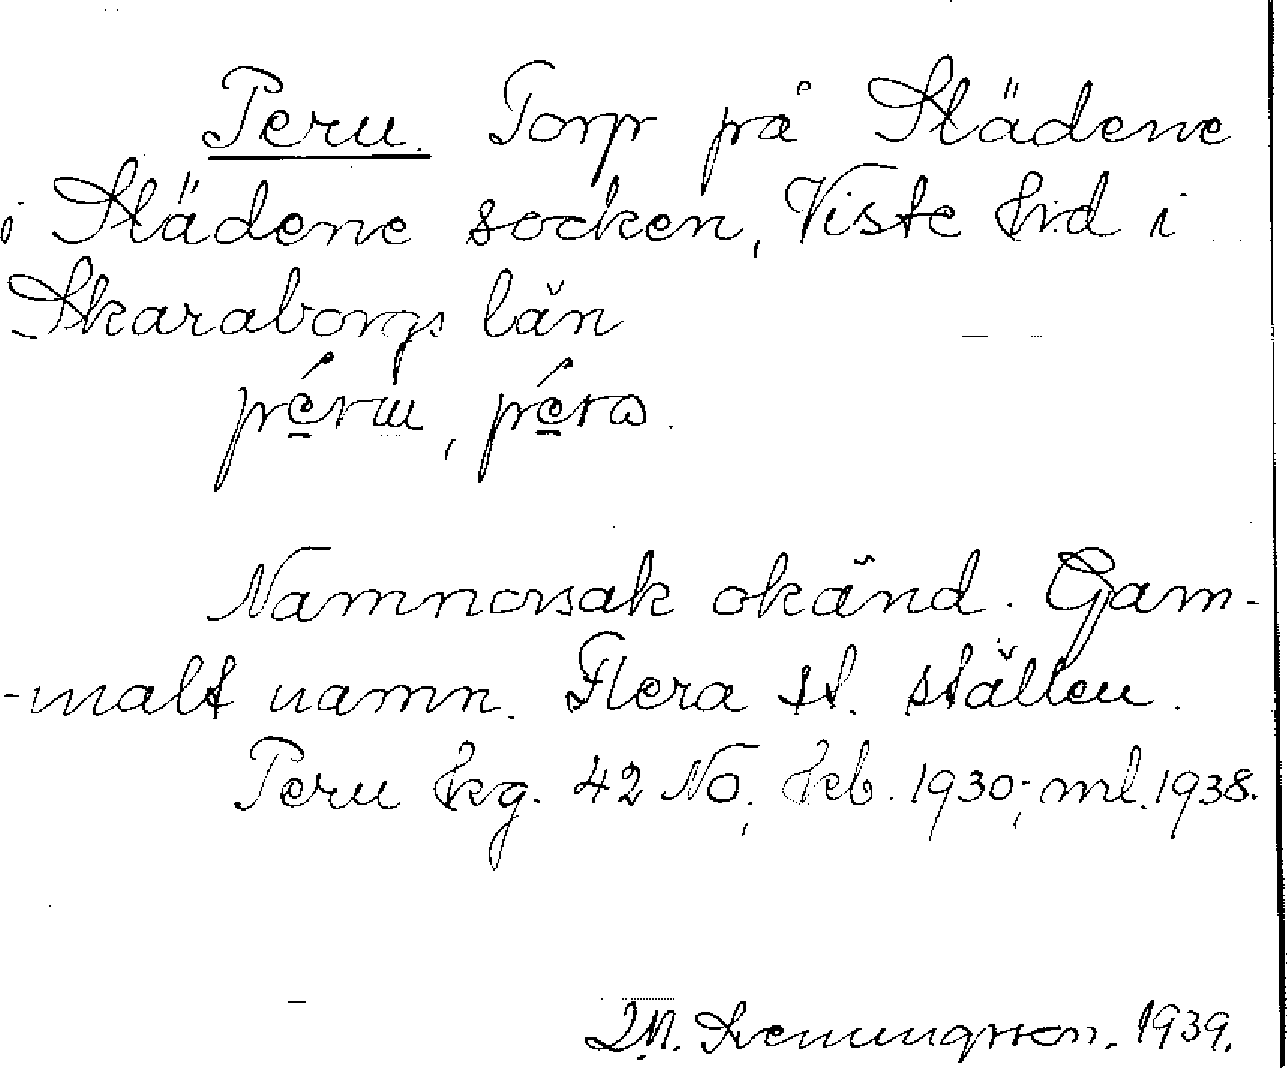 Peru. Torp på Slädene
i Slädene socken, Viste hd i
Skaraborgs län
péru, péra.
Namnorsak okänd. Gam-
-malt namn. Flera st. ställen.
Peru Hkg. 42 NO; Jkb. 1930; ml. 1938.
1939.